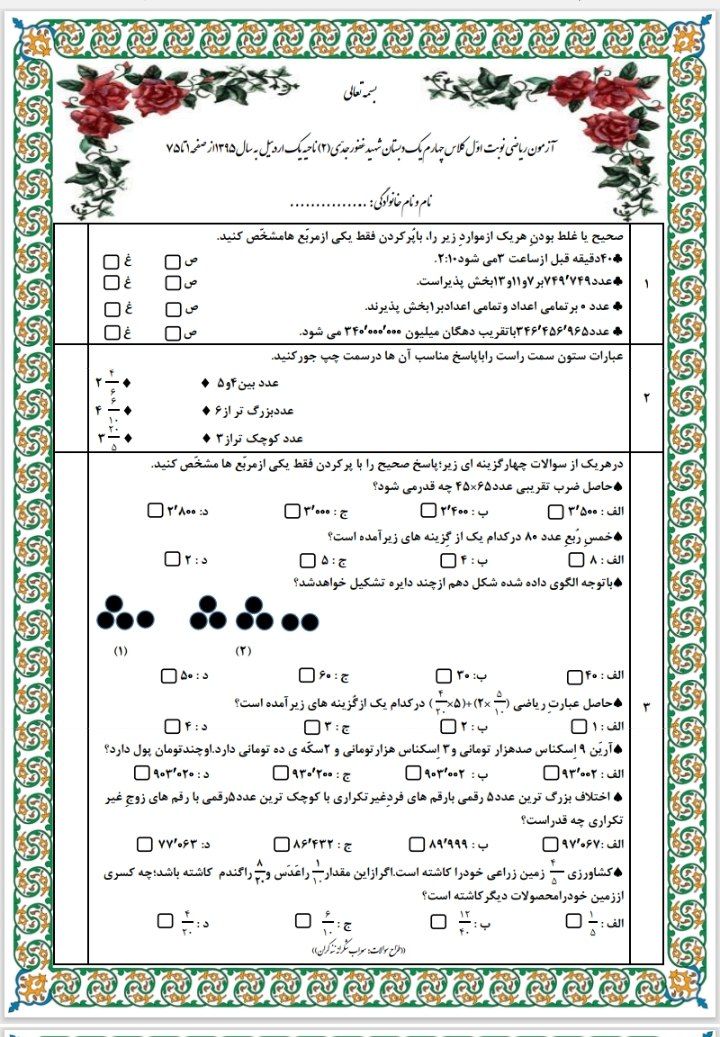 بسمه تعالی
آزمون ریاضی نوبت اوّل کلاس چهارم یک دبستان شهید غفور جدّی (۲) ناحیه یک اردبیل به سال ۱۳۹۵از صفحه ۱تا ۷۵
نام و نام خانوادگی: ................
۱
صحیح یا غلط بودنِ هریک ازمواردِ زیر را، باپُرکردن فقط یکی ازمربّع هامشخّص کنید.
♣۴۰دقیقه قبل ازساعت ۳می شود۲:۱۰. ص غ
♣عدد۷۴۹٬۷۴۹بر۷و۱۱و۱۳بخش پذیراست. ص غ
♣ عدد ۰ برتمامی اعداد وتمامی اعدادبر۱بخش پذیرند. ص غ
♣ عدد۳۴۶٬۴۵۶٬۹۶۵باتقریب دهگان میلیون ۳۴۰٬۰۰۰٬۰۰۰ می شود. ص غ
۲
عبارات ستون سمت راست راباپاسخ مناسب آن ها درسمت چپ جورکنید.
عدد بین۴و۵ ♦ ♦ ۲ ۴/۶
عددبزرگ تر از۶ ♦ ♦ ۴ ۶/۱۰
عدد کوچک تراز۳ ♦ ♦ ۳ ۲۰/۵
۳
درهریک از سوالات چهارگزینه ای زیر؛پاسخ صحیح را با پرکردن فقط یکی ازمربّع ها مشخّص کنید.
♠حاصل ضرب تقریبی عدد۶۵×۴۵ چه قدرمی شود؟
الف : ۳٬۵۰۰ ب : ۲٬۴۰۰ ج : ۳٬۰۰۰ د: ۲٬۸۰۰
♠خمسِ رُبعِ عدد ۸۰ درکدام یک از گزینه های زیرآمده است؟
الف : ۸ ب : ۴ ج : ۵ د : ۲
♠باتوجه الگوی داده شده شکل دهم ازچند دایره تشکیل خواهدشد؟
(۱) (۲)
الف : ۴۰ ب: ۳۰ ج : ۶۰ د : ۵۰
♠حاصل عبارتِ ریاضی (۵/۱۰ ×۲)+(۵×۴/۲۰) درکدام یک ازگزینه های زیرآمده است؟
الف : ۱ ب : ۲ ج : ۳ د : ۴
♠آرین ۹ اِسکناس صدهزار تومانی و۳ اِسکناس هزارتومانی و ۲سکّه ی ده تومانی دارد.اوچندتومان پول دارد؟
الف : ۹۳٬۰۰۲ ب : ۹۰۳٬۰۰۲ ج : ۹۳۰٬۲۰۰ د : ۹۰۳٬۰۲۰
♠ اختلاف بزرگ ترین عدد۵ رقمی بارقم های فردِغیرتکراری با کوچک ترین عدد۵رقمی با رقم های زوجِ غیر
تکراری چه قدراست؟
الف : ۹۷٬۰۶۷ ب : ۸۹٬۹۹۹ ج : ۸۶٬۴۳۲ د: ۷۷٬۰۶۳
♠کشاورزی ۴/۵ زمین زراعی خودرا کاشته است.اگرازاین مقدار۱/۱۰ راعَدَس و۸/۲۰راگندم کاشته باشد؛چه کسری
اززمین خودرامحصولات دیگرکاشته است؟
الف : ۱/۵ ب : ۱۲/۴۰ ج : ۶/۱۰ د : ۴/۲۰
((طرّاح سوالات: